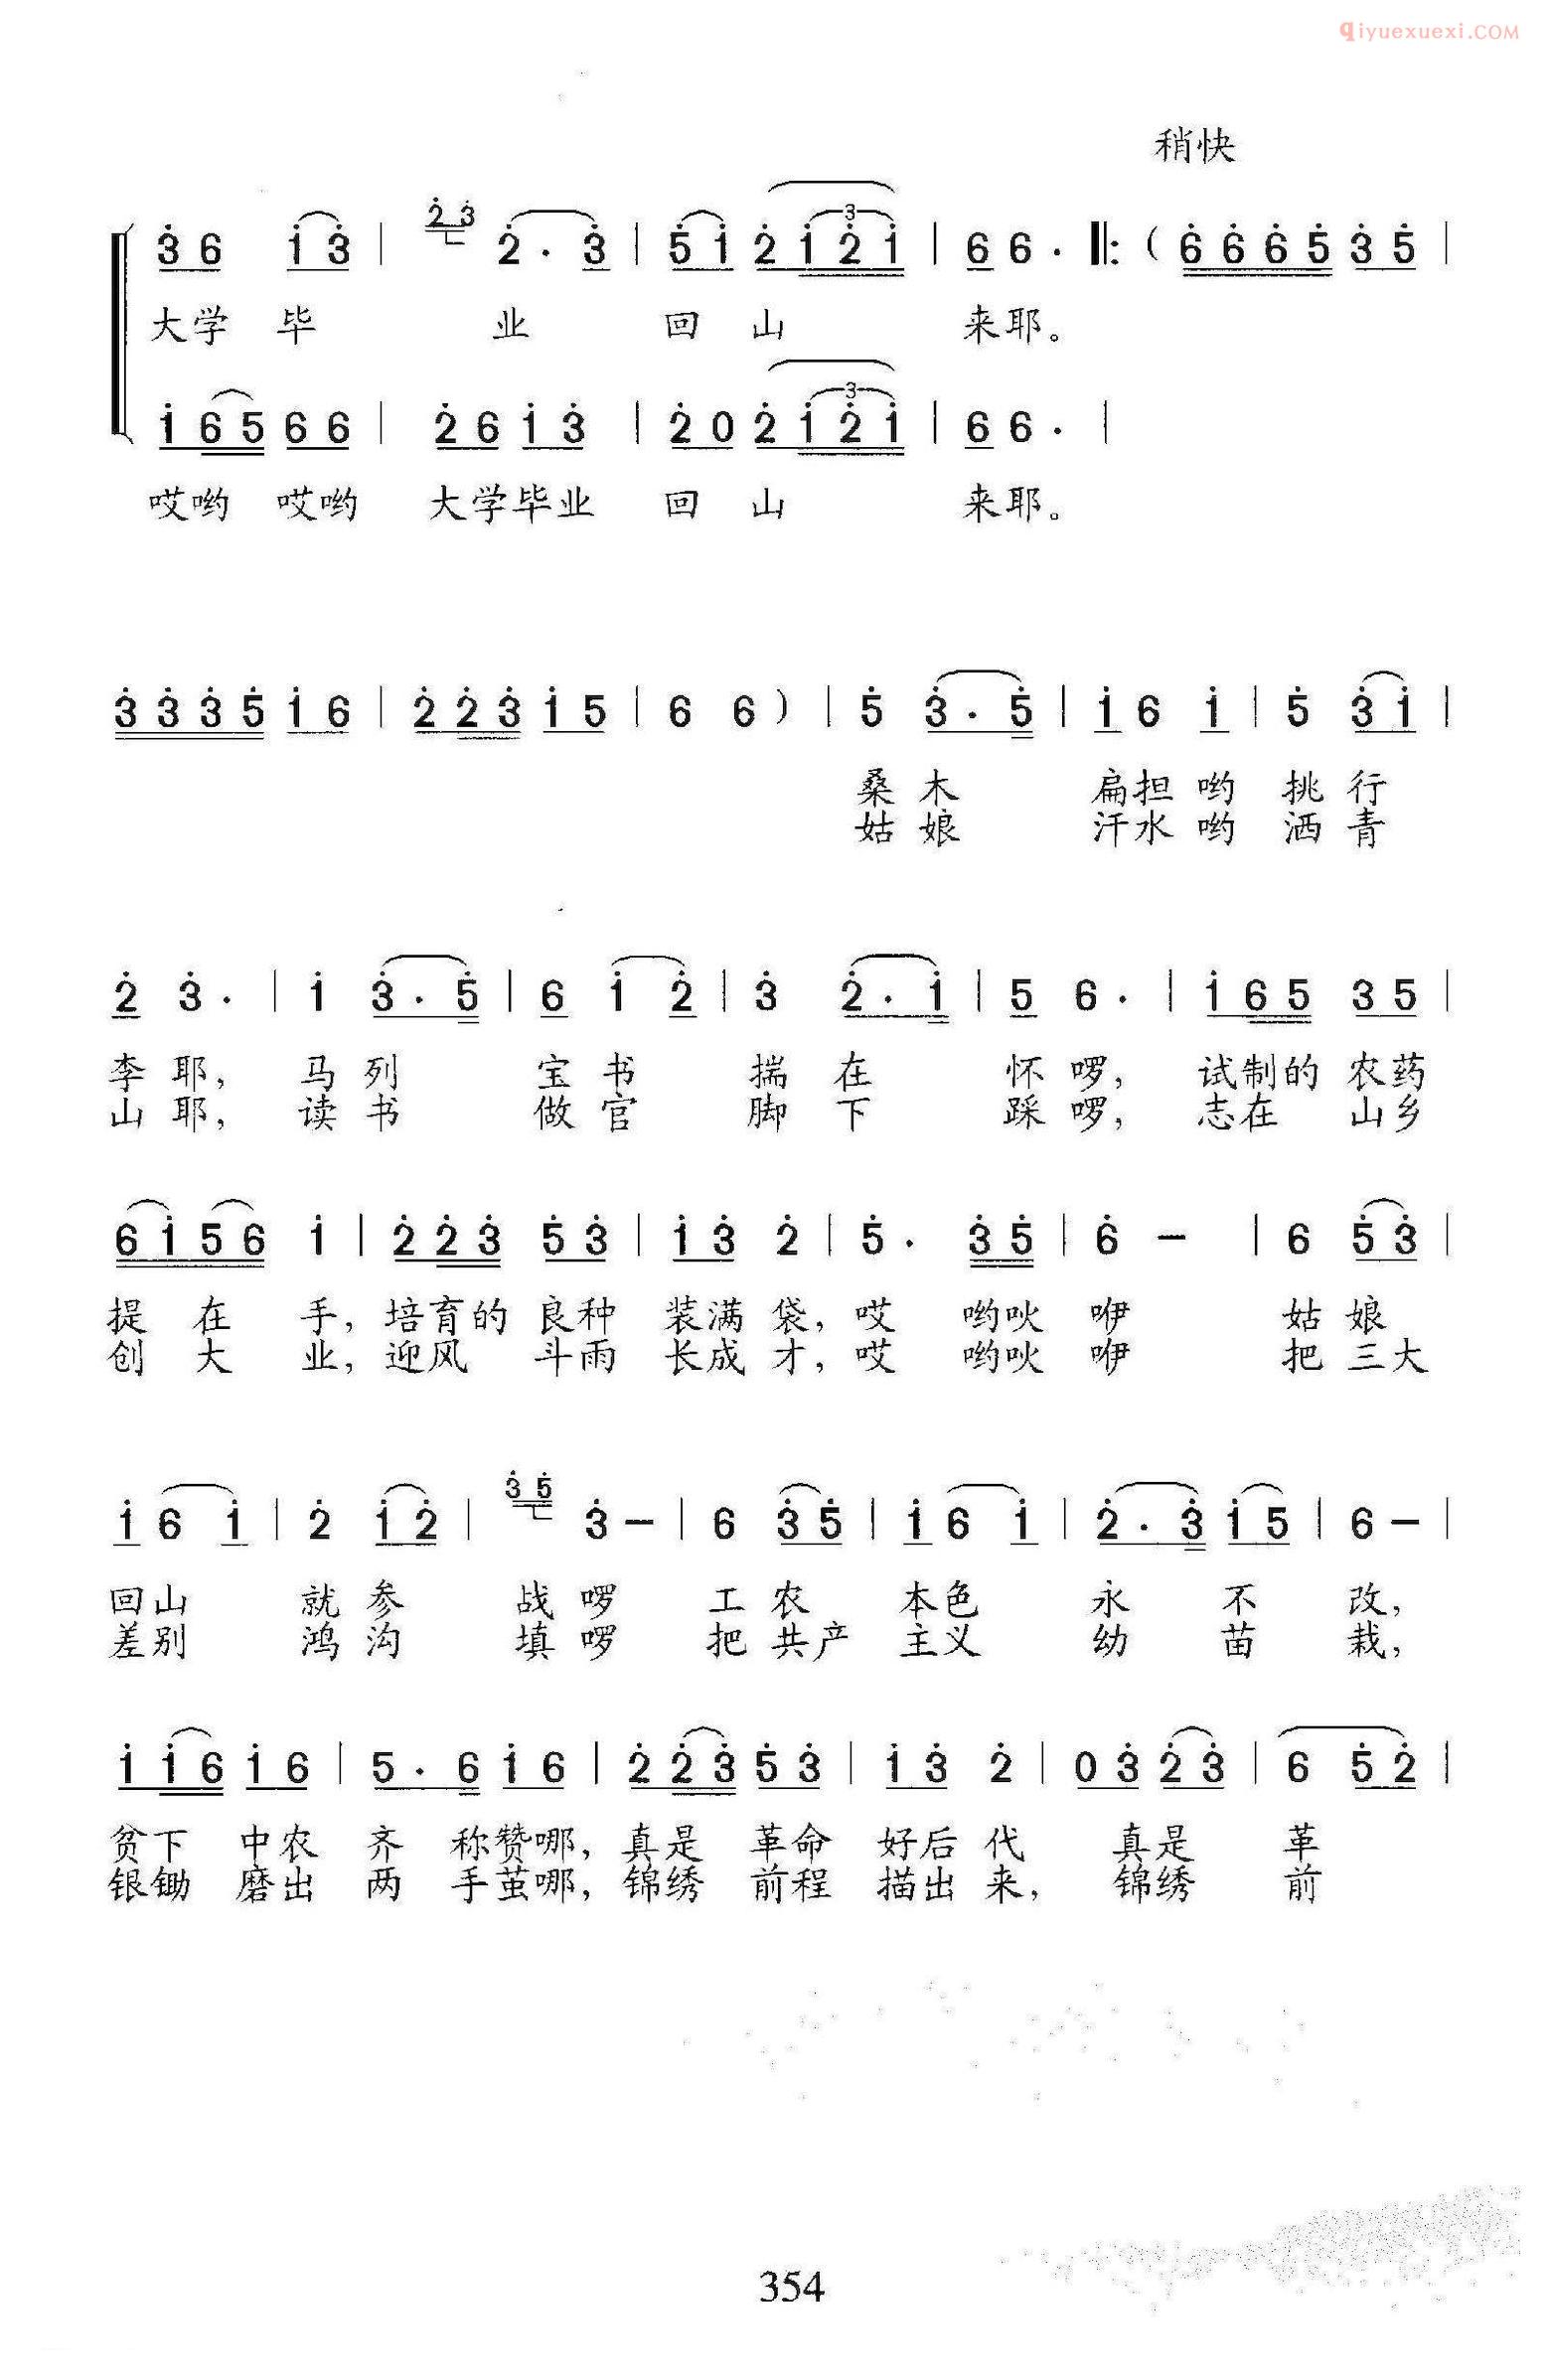 qiyuexuexi.COM
稍快
2̇ 3̇
3̇ 6 1̇ 3̇ | 2̇ · 3̇ | 5̇ 1̇ 2̇ 1̇ 2̇ 1̇ | 6 6 · ‖: ( 6̇ 6̇ 6̇ 5̇ 3̇ 5̇ |
大学 毕 业 回 山 来耶。
1̇ 6 5 6 6 | 2̇ 6 1̇ 3̇ | 2̇ 0 2̇ 1̇ 2̇ 1̇ | 6 6 · |
哎哟 哎哟 大学毕业 回 山 来耶。
3̇ 3̇ 3̇ 5̇ 1̇ 6 | 2̇ 2̇ 3̇ 1̇ 5 | 6 6 ) | 5̇ 3̇ · 5̇ | 1̇ 6 1̇ | 5̇ 3̇ 1̇ |
桑 木 扁担 哟 挑 行
姑 娘 汗水 哟 洒 青
2̇ 3̇ · | 1̇ 3̇ · 5̇ | 6 1̇ 2̇ | 3̇ 2̇ · 1̇ | 5 6 · | 1̇ 6 5 3 5 |
李 耶, 马 列 宝 书 揣 在 怀 啰, 试制的 农药
山 耶, 读 书 做 官 脚 下 踩 啰, 志在 山乡
6 1̇ 5 6 1̇ | 2̇ 2̇ 3̇ 5̇ 3̇ | 1̇ 3̇ 2̇ | 5̇ · 3̇ 5̇ | 6̇ – | 6 5̇ 3̇ |
提 在 手, 培育的 良种 装满 袋, 哎 哟吙 咿 姑 娘
创 大 业, 迎风 斗雨 长成 才, 哎 哟吙 咿 把 三大
3̇ 5̇
1̇ 6 1̇ | 2̇ 1̇ 2̇ | 3̇ – | 6 3̇ 5̇ | 1̇ 6 1̇ | 2̇ · 3̇ 1̇ 5 | 6 – |
回山 就 参 战 啰 工 农 本色 永 不 改,
差别 鸿 沟 填 啰 把 共产 主义 幼 苗 栽,
1̇ 1̇ 6 1̇ 6 | 5 · 6 1̇ 6 | 2̇ 2̇ 3̇ 5̇ 3̇ | 1̇ 3̇ 2̇ | 0 3̇ 2̇ 3̇ | 6 5̇ 2̇ |
贫下 中农 齐 称赞哪, 真是 革命 好后 代 真是 革
银锄 磨出 两 手茧哪, 锦绣 前程 描出 来, 锦绣 前
354